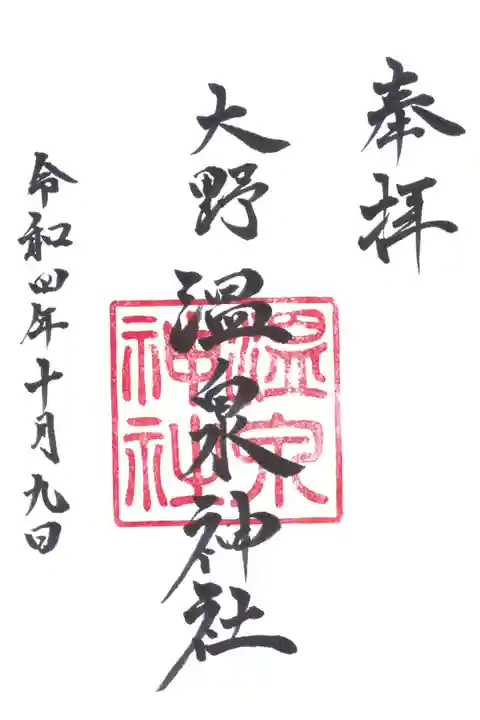 奉拝
大野温泉神社
温泉神社
令和四年十月九日